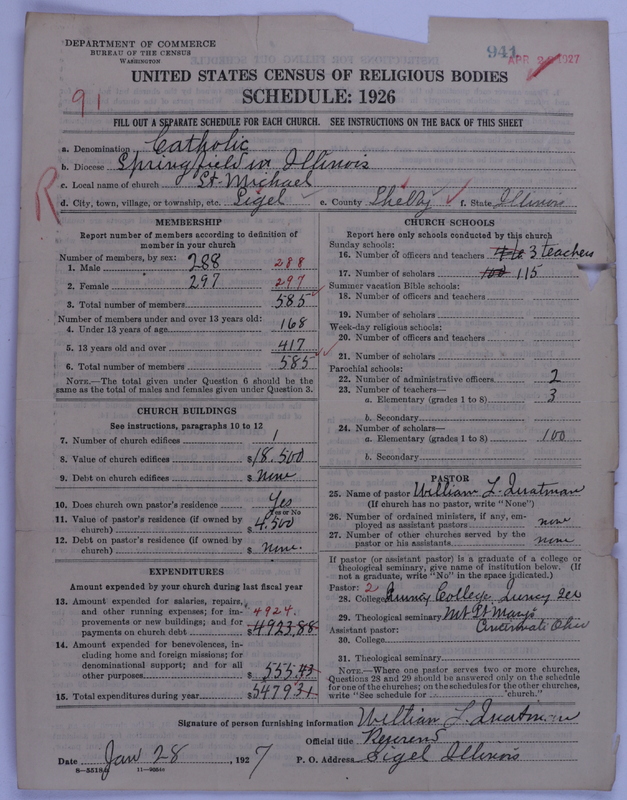 DEPARTMENT OF COMMERCE
BUREAU OF THE CENSUS
WASHINGTON
941
APR 2 1927
UNITED STATES CENSUS OF RELIGIOUS BODIES
SCHEDULE: 1926
91
FILL OUT A SEPARATE SCHEDULE FOR EACH CHURCH. SEE INSTRUCTIONS ON THE BACK OF THIS SHEET
a. Denomination Catholic
b. Diocese Springfield in Illinois
c. Local name of church St. Michael
R
d. City, town, village, or township, etc. Sigel e. County Shelby f. State Illinois
MEMBERSHIP
Report number of members according to definition of
member in your church
Number of members, by sex:
1. Male 288 288
2. Female 297 297
3. Total number of members 585
Number of members under and over 13 years old:
4. Under 13 years of age 168
5. 13 years old and over 417
6. Total number of members 585
NOTE.—The total given under Question 6 should be
the same as the total of males and females given under Question 3.
CHURCH BUILDINGS
See instructions, paragraphs 10 to 12
7. Number of church edifices 1
8. Value of church edifices $18.500
9. Debt on church edifices $ none
10. Does church own pastor's residence Yes
Yes or No
11. Value of pastor's residence (if owned by
church) $4.500
12. Debt on pastor's residence (if owned by
church) $ none.
EXPENDITURES
Amount expended by your church during last fiscal year
13. Amount expended for salaries, repairs,
and other running expenses; for im-
provements or new buildings; and for
payments on church debt 4924. $4923.88
14. Amount expended for benevolences, in-
cluding home and foreign missions; for
denominational support; and for all
other purposes $555.43
15. Total expenditures during year $5479.31
CHURCH SCHOOLS
Report here only schools conducted by this church
Sunday schools:
16. Number of officers and teachers 3 teachers
17. Number of scholars 100 115
Summer vacation Bible schools:
18. Number of officers and teachers
19. Number of scholars
Week-day religious schools:
20. Number of officers and teachers
21. Number of scholars
Parochial schools:
22. Number of administrative officers 2
23. Number of teachers—
a. Elementary (grades 1 to 8) 3
b. Secondary
24. Number of scholars—
a. Elementary (grades 1 to 8) 100
b. Secondary
PASTOR
25. Name of pastor William L. Quatman
(If church has no pastor, write "None")
26. Number of ordained ministers, if any, em-
ployed as assistant pastors none
27. Number of other churches served by the
pastor or his assistants none
If pastor (or assistant pastor) is a graduate of a college or
theological seminary, give name of institution below. (If
not a graduate, write "No" in the space indicated.)
Pastor: 2
28. College Quincy College Quincy Ill
29. Theological seminary Mt. St Mary's
Cincinnati Ohio
Assistant pastor:
30. College
31. Theological seminary
NOTE.—Where one pastor serves two or more churches,
Questions 28 and 29 should be answered only on the schedule
for one of the churches; on the schedules for the other churches,
write "See schedule for church."
Signature of person furnishing information William L. Quatman
Official title Reverend
Date Jan 28, 1927 P. O. Address Sigel Illinois